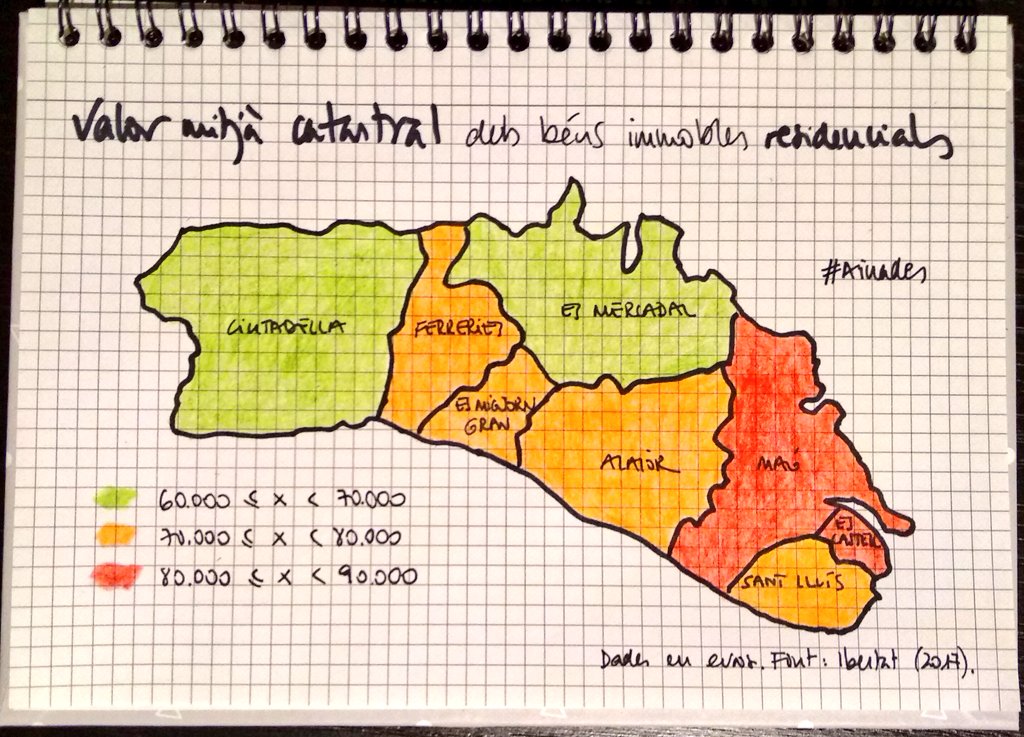 Valor mitjà catastral dels béns immobles residencials
#Ainades
CIUTADELLA
FERRERIES
ES MERCADAL
ES MIGJORN
GRAN
ALAIOR
MAÓ
ES
CASTELL
SANT LLUÍS
60.000 ≤ x < 70.000
70.000 ≤ x < 80.000
80.000 ≤ x < 90.000
Dades en euros. Font: Ibestat (2017).